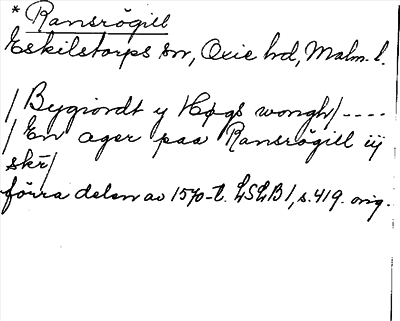 * Ransrögill
Eskilstorps sn, Oxie hd, Malm. l.
/Bygiordt y Høgs wongh/----
/En ager paa Ransrögill iij
skr̄/
förra delen av 1570-t. LSLB1, s. 419. orig.